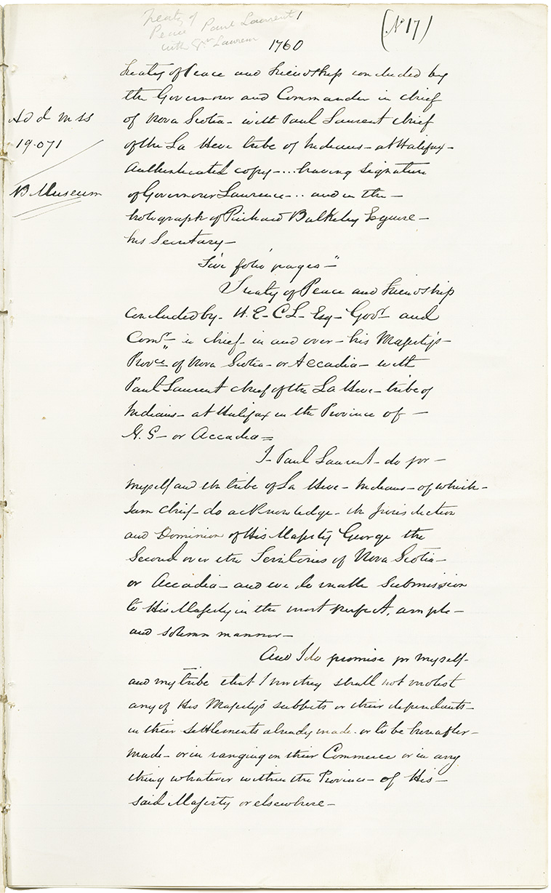 Treaty of 1
Peace Paul Laurent
with Gr Lawren
(No 17)
1760
Treaty of Peace and Friendship concluded by
the Governour and Commander in chief
of Nova Scotia - with Paul Laurent chief
of the La Heve tribe of Indians - at Halifax -
Authenticated copy - ... having signature
of Governour Laurence - .. and in the -
holograph of Richard Bulkeley Esquire -
his Secretary -
Add mss
19.071
B Museum
"Five folio pages -"
Treaty of Peace and Friendship
concluded by - H. E - C L - Esqr - Govr and
Comr in chief - in and over - his Majesty's -
Provce of Nova Scotia - or Accadia - with
Paul Laurent chief of the La Heve - tribe of
Indians - at Halifax in the Province of -
N. S - or Accadia =
I - Paul Laurent - do for -
myself and the tribe of La Heve - Indians - of which -
I am Chief - do acknowledge - the Jurisdiction
and Dominion of His Majesty George the
Second over the Territories of Nova Scotia -
or Accadia - and we do make Submission
to His Majesty in the most perfect, ample -
and solemn manner -
And I do promise for myself -
and my tribe that I nor they shall not molest
any of His Majesty's subjects or their dependents -
in their settlements already made - or to be hereafter -
made - or in ranging on their Commerce or in any
thing whatever within the Province - of His -
said Majesty or elsewhere -